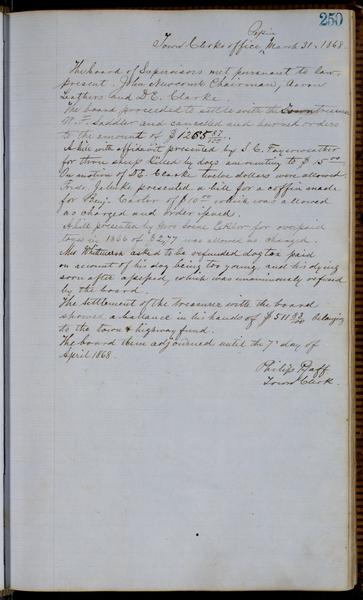 250
Pepin
Town Clerks office, March 31, 1868.
The board of Supervisors met pursuant to law
present, John Newcomb Chairman, Aaron
Leathers and D. C. Clarke.
The board proceeded to settle with the Town
W. F. Sadler and cancelled and burned orders
to the amount of $1265
A bill with affidavit presented by S. C. Fayerweather
for three sheep killed by dogs amounting to $15.00
On motion of D. C. Clarke twelve dollars were allowed.
Fredr. presented a bill for a coffin made
for Benj. Carter of $10.00, which was allowed
as charged and order issued.
A bill presented by for overpaid
taxes in 1866 of $2,77 was allowed as charged.
Mr. Whitmeron asked to be refunded dogtax paid
on account of his dog being too young, and his dying
soon after assessed, which was unanimously refused
by the board.
The settlement of the Treasurer with the board
showed a ballance in his hands of $511 belonging
to the town & highway fund.
The board then adjourned until the 7th day of
April 1868.
Philip Pfaff
Town Clerk.